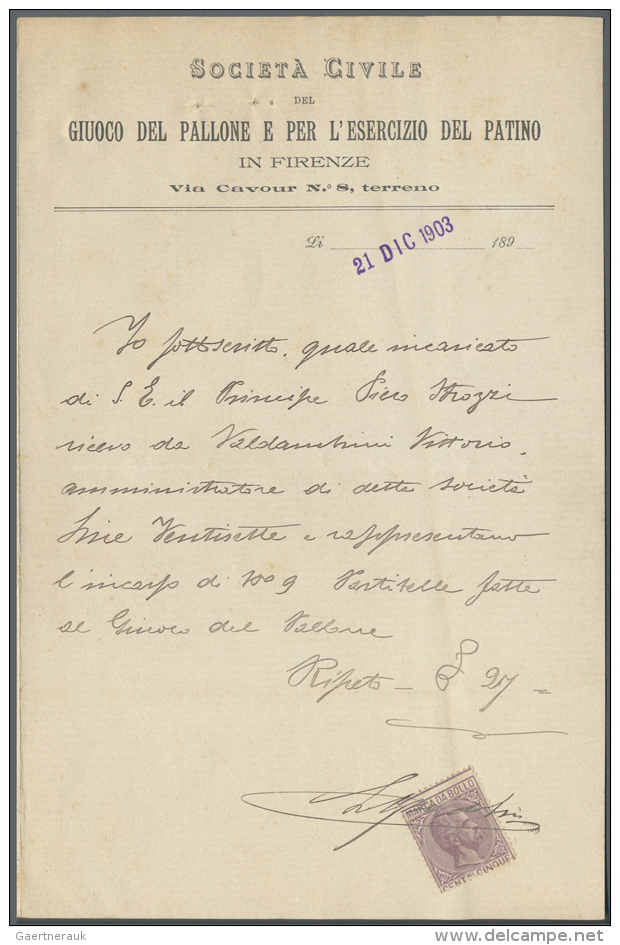 SOCIETÀ CIVILE
DEL
GIUOCO DEL PALLONE E PER L'ESERCIZIO DEL PATINO
IN FIRENZE
Via Cavour N.º 8, terreno
Li 21 DIC 1903 189
Io sottoscritto, quale incaricato
di S. E. il Principe Piero Strozzi
ricevo da Valdambrini Vittorio,
amministratore di detta società
Lire Ventisette e rappresentano
l'incasso di Nº 9 Partitelle fatte
al Giuoco del Pallone
Ripeto - £ 27 =
MARCA DA BOLLO
CENT.MI CINQUE
Gaertnerauk
www.delcampe.net